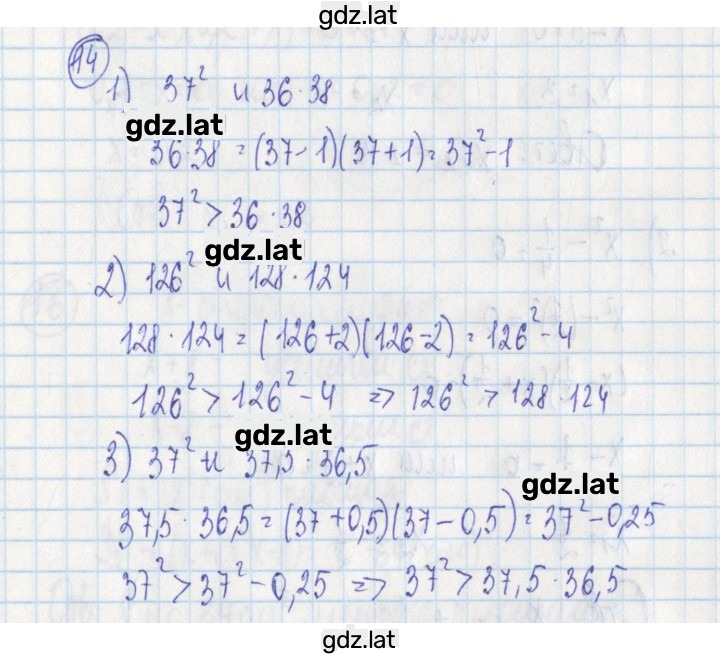 gdz.lat
14
1) 37² и 36·38
gdz.lat
36·38 = (37-1)(37+1) = 37²-1
37² > 36·38
gdz.lat
2) 126² и 128·124
128·124 = (126+2)(126-2) = 126²-4
126² > 126²-4 => 126² > 128·124
gdz.lat
3) 37² и 37,5·36,5
gdz.lat
37,5·36,5 = (37+0,5)(37-0,5) = 37²-0,25
37² > 37²-0,25 => 37² > 37,5·36,5
gdz.lat